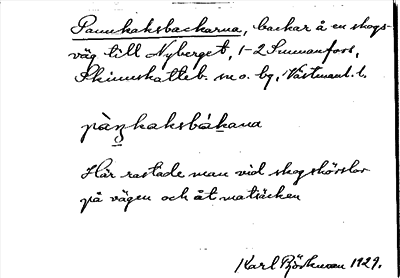 Pannkaksbackarna, backar å en skogs-
väg till Nyberget, 1-2 Sunnanfors,
Skinnskatteb. sn o. bg, Västmanl. l.
pànkaksbákana
Här rastade man vid skogskörslor
på vägen och åt matsäcken
Karl Björkman 1929.